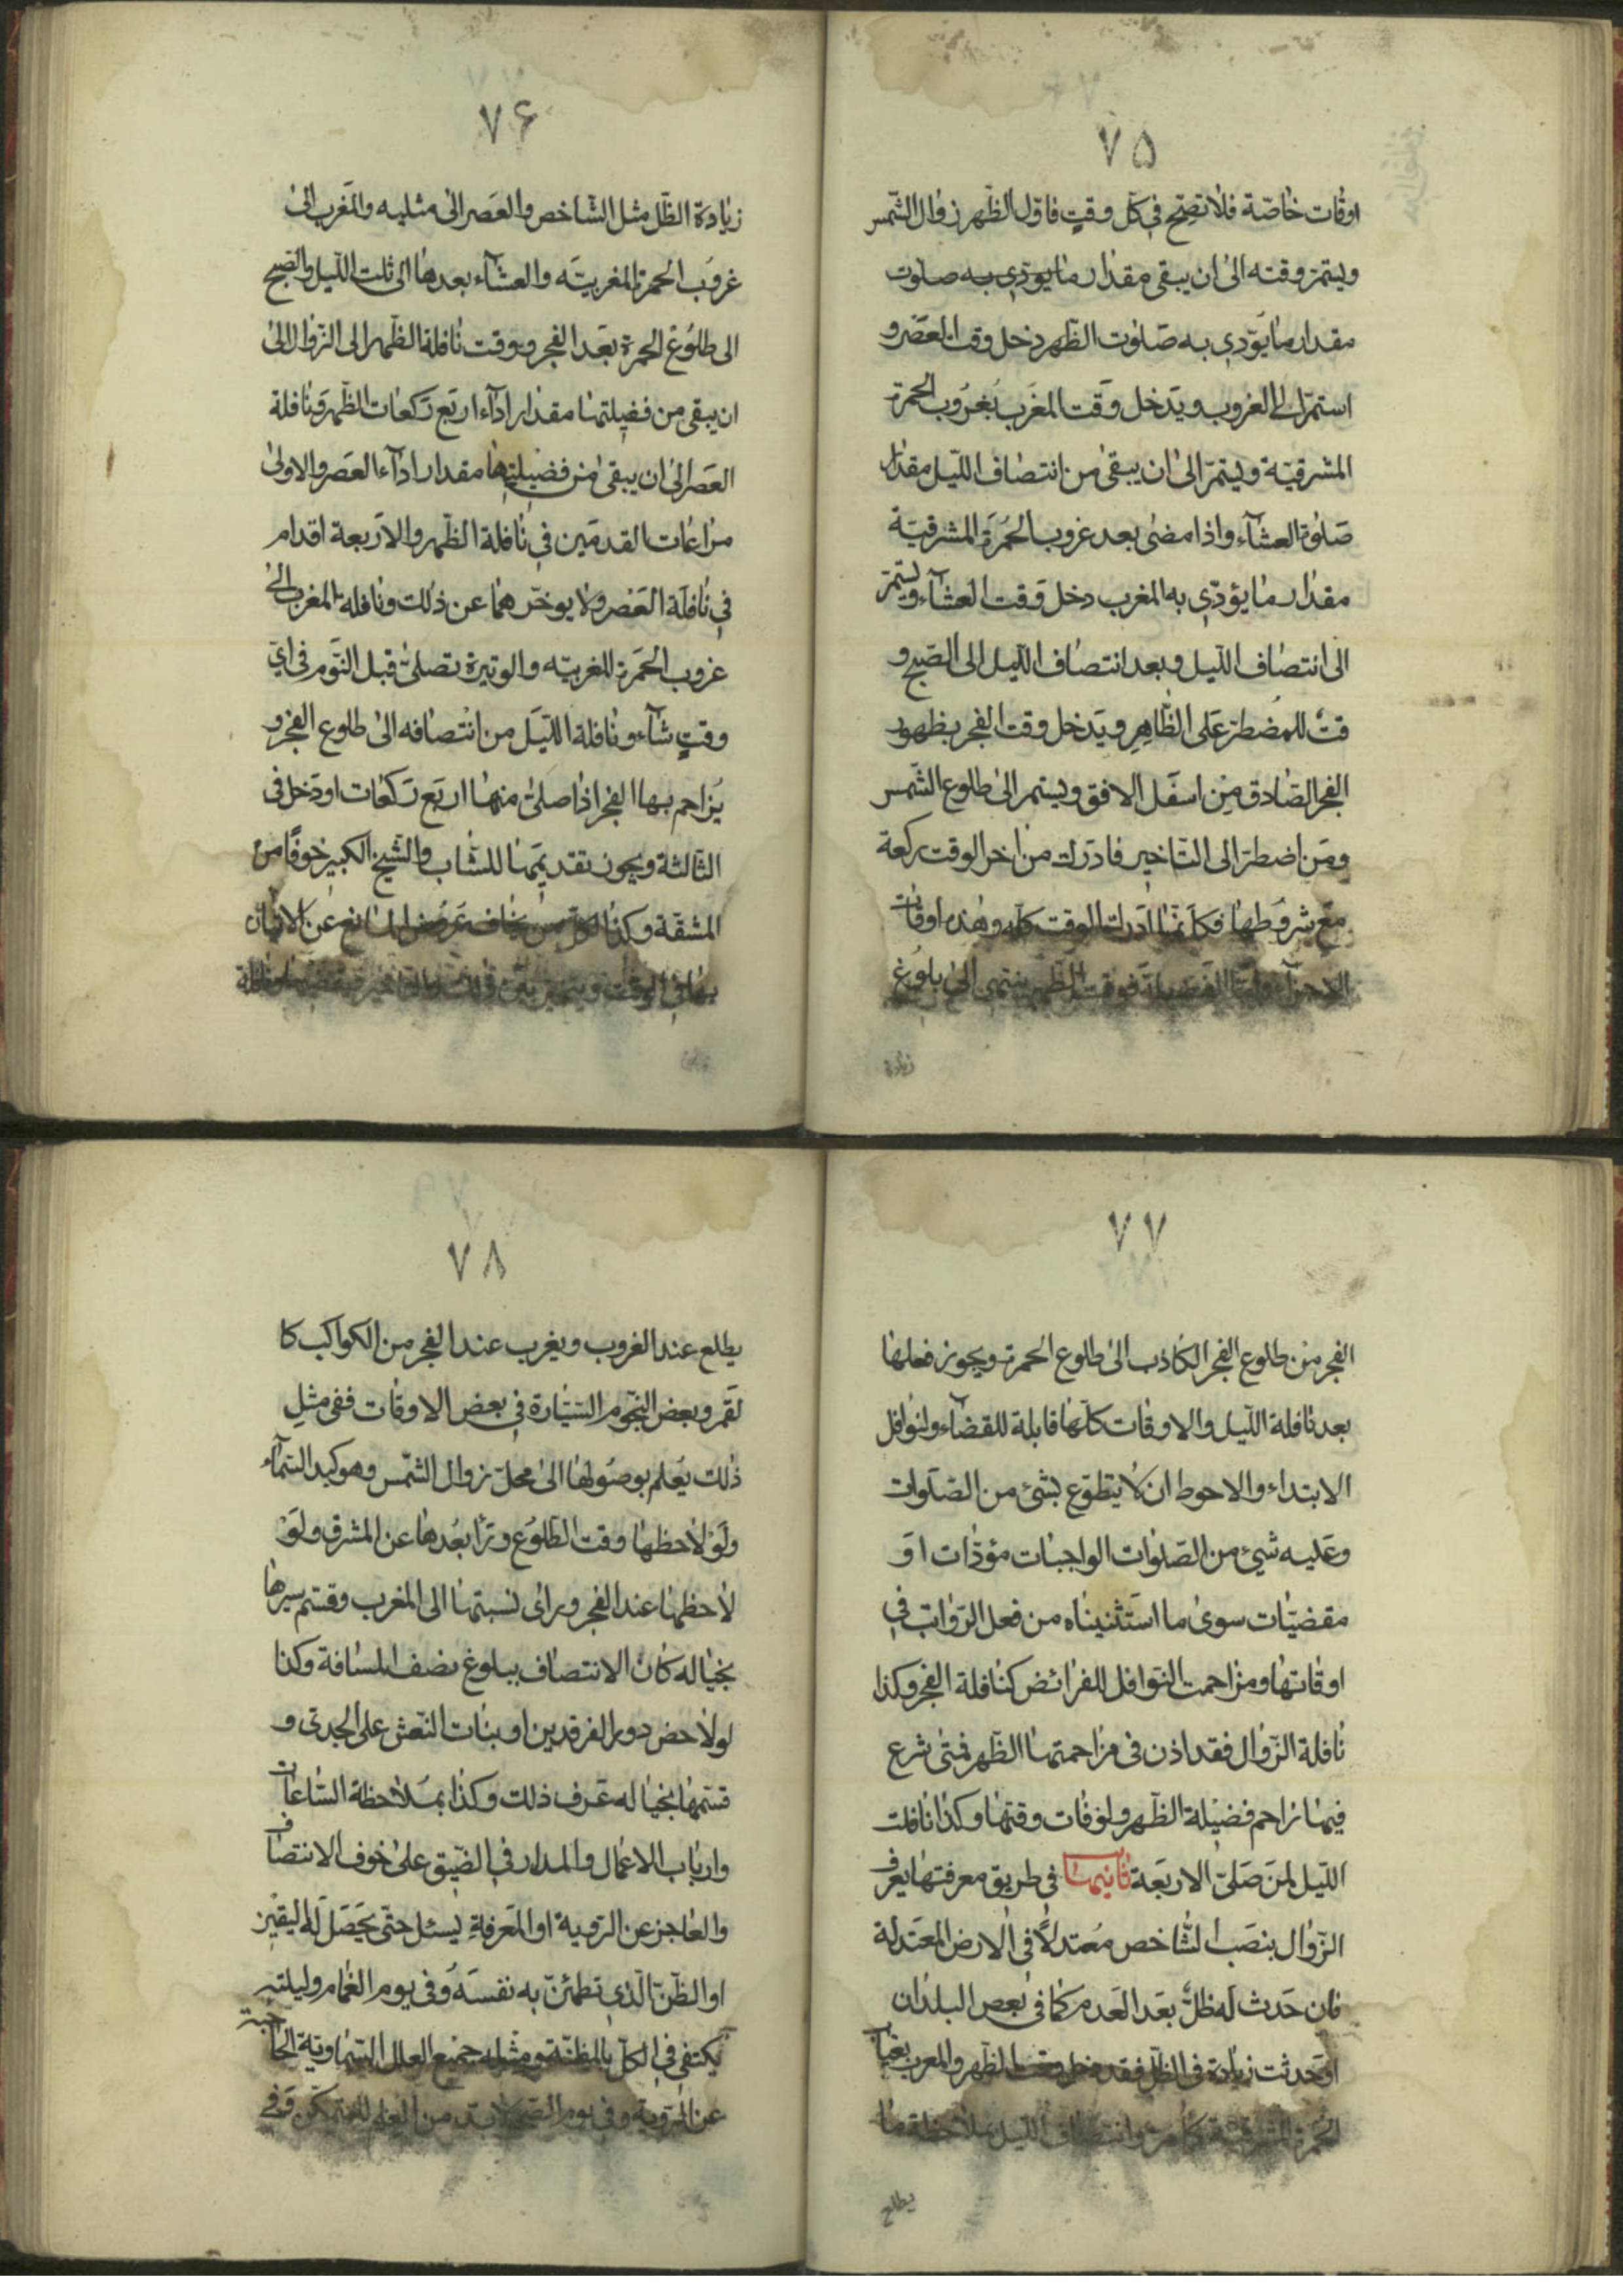 ۷۵
اوقات خاصّة فلا تصحّ في كلّ وقتٍ فاوّل الظّهر زوال الشّمس
ويتمرّ وقته الىٰ ان يبقى مقدار ما يؤدي به صلوت
مقدار ما يؤدي به صلوت الظّهر دخل وقت العصر و
استمرّ الى الغروب ويدخل وقت المغرب بغروب الحمرة
المشرقيّة ويتمرّ الىٰ ان يبقىٰ من انتصاف اللّيل مقدار
صلوة العشآء واذا مضىٰ بعد غروب الحمرة المشرقيّة
مقدار ما يؤدّي به المغرب دخل وقت العشآء ويتمرّ
الى انتصاف اللّيل وبعد انتصاف اللّيل الى الصّبح و
قتٌ للمضطرّ على الظّاهرِ ويدخل وقت الفجر بظهور
الفجر الصّادق من اسفل الافق ويستمر الىٰ طلوع الشّمس
ومن اضطرّ الى التّاخير فادرك من اخر الوقت ركعة
مع شروطها فكانّما ادرك الوقت كلّه وهذه اوقات
الاجزآء وامّا الفضيلة فوقت الظّهر ينتهى الىٰ بلوغ
زيادة
۷۶
زيادة الظّل مثل الشّاخص والعصر الىٰ مثليه والمغرب الىٰ
غروب الحمرة المغربيّه والعشآء بعدها الى ثلث اللّيل والصّبح
الى طلوع الحمرة بعد الفجر ووقت نافلة الظّهر الى الزّوال الىٰ
ان يبقى من فضيلتها مقدار ادآء اربع ركعات الظّهر ونافلة
العصر الىٰ ان يبقىٰ من فضيلتها مقدار ادآء العصر والاولىٰ
مراعات القدمين في نافلة الظّهر والاربعة اقدام
في نافلة العصر ولا يوخّر هما عن ذلك ونافله المغرب الىٰ
غروب الحمرة المغربيّه والوتيرة تصلىّ قبل النّوم فى اىّ
وقتٍ شآء ونافلة اللّيل من انتصافه الىٰ طلوع الفجر و
يزاحم بها الفجر اذا صلىّ منها اربع ركعات او دخل فى
الثّالثة ويجوز تقديمها للشّاب والشّيخ الكبير خوفًا من
المشقّة وكذا لكلّ من يخاف عروض المانع عن الاتيان
بها فى الوقت
۷۷
الفجر من طلوع الفجر الكاذب الىٰ طلوع الحمرة ويجوز فعلها
بعد نافلة اللّيل والاوقات كلّها قابلة للقضآء ولنوافل
الابتداء والاحوط ان لا يتطوّع بشئ من الصّلوات
وعليه شئ من الصّلوات الواجبات مؤدّات او
مقضيّات سوىٰ ما استثنيناه من فعل الرّواتب في
اوقاتها ومزاحمت النّوافل للفرائض كنافلة الفجر وكذا
نافلة الزّوال فقد اذن فى مزاحمتها الظّهر فمتى شرع
فيها زاحم فضيلة الظّهر ولو فات وقتها وكذا نافلت
اللّيل لمن صلىّ الاربعة ثانيها فى طريق معرفتها يعرف
الزّوال بنصب الشّاخص معتدلًا فى الارض المعتدلة
فان حدث له ظلّ بعد العدم كما فى بعص البلدان
او حدثت زيادة فى الظّل فقد دخل وقت الظّهر والمغرب بغياب
الحمرة المشرقيّة كما مرّ وانتصاف اللّيل بملاحظة ما
يطلع
۷۸
يطلع عند الغروب ويغرب عند الفجر من الكواكب كا
لقمر وبعض النّجوم السّيّارة في بعض الاوقات ففى مثلِ
ذلك يعلم بوصولها الىٰ محلّ زوال الشّمس وهو كبد السّمآء
ولو لاحظها وقت الطّلوع ورأ بعدها عن المشرق ولو
لاحظها عند الفجر وراى نسبتها الى المغرب وقسّم سيرها
بخياله كان الانتصاف ببلوغ نصف المسافة وكذا
لو لاحض دور الفرقدين او بنات النّعش على الجدى و
قسّمها بخياله عرف ذلك وكذا بملاحظة السّاعات
وارباب الاعمال والمدار في الضّيق علىٰ خوف الانتصاف
والعاجز عن الرّوية او المعرفة يسئل حتّى يحصل له اليقين
او الظّنّ الّذي تطمئنّ به نفسه وفى يوم الغمام وليلته
يكتفي في الكلّ بالمظنّة ومثله جميع العلل السّماوية الحاجبة
عن الرّوية وفى يوم الصّحو لا بدّ من العلم للمتمكّن وفى